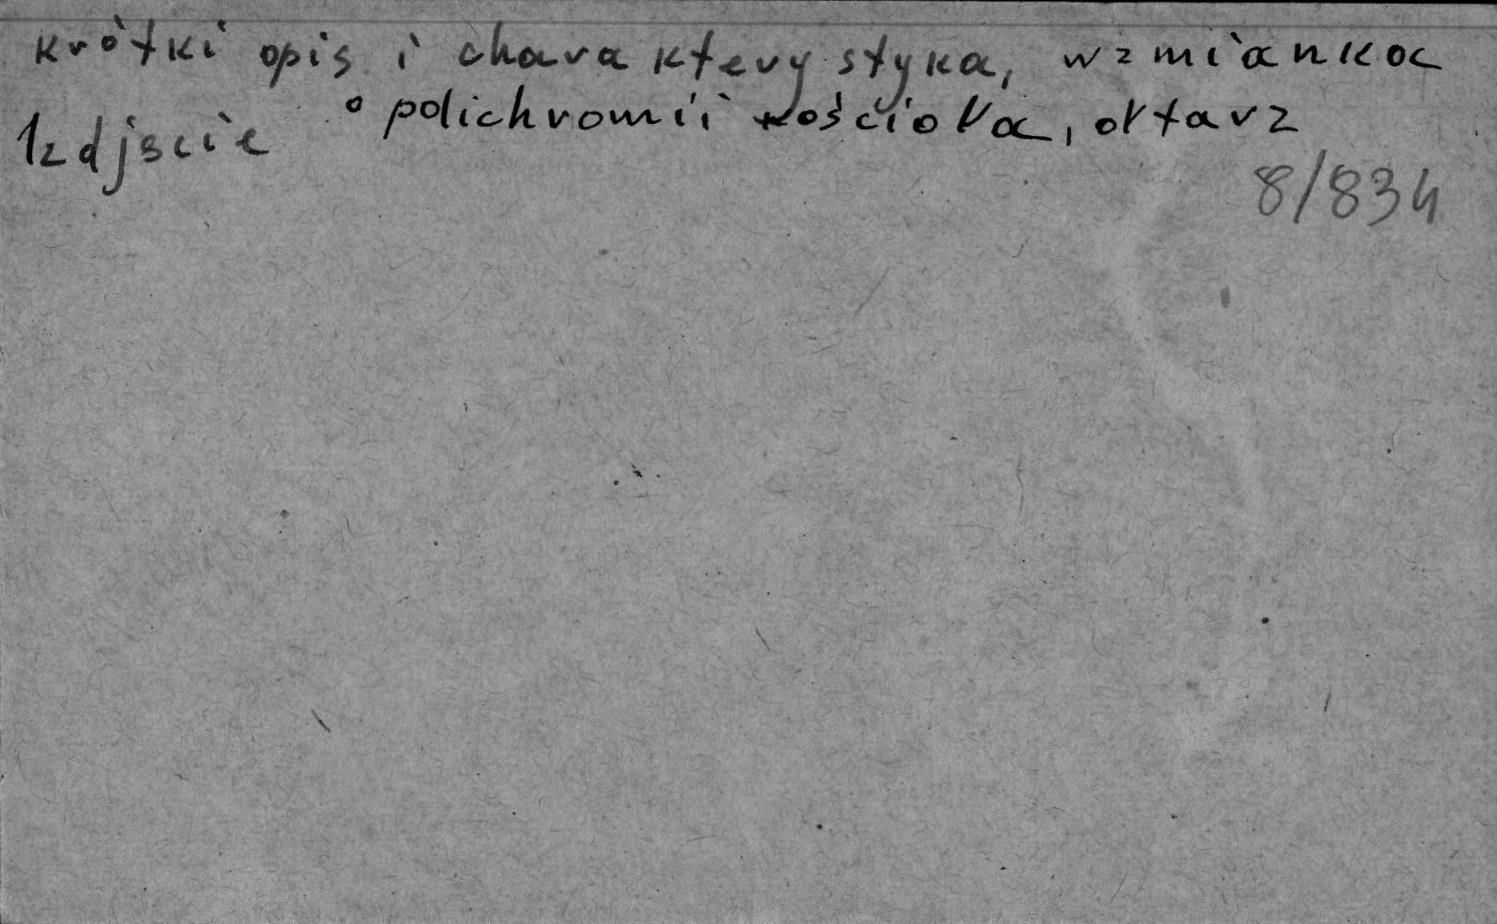 krótki opis i charakterystyka, wzmianka
o polichromii kościoła, ołtarz
1 zdjęcie
8/834